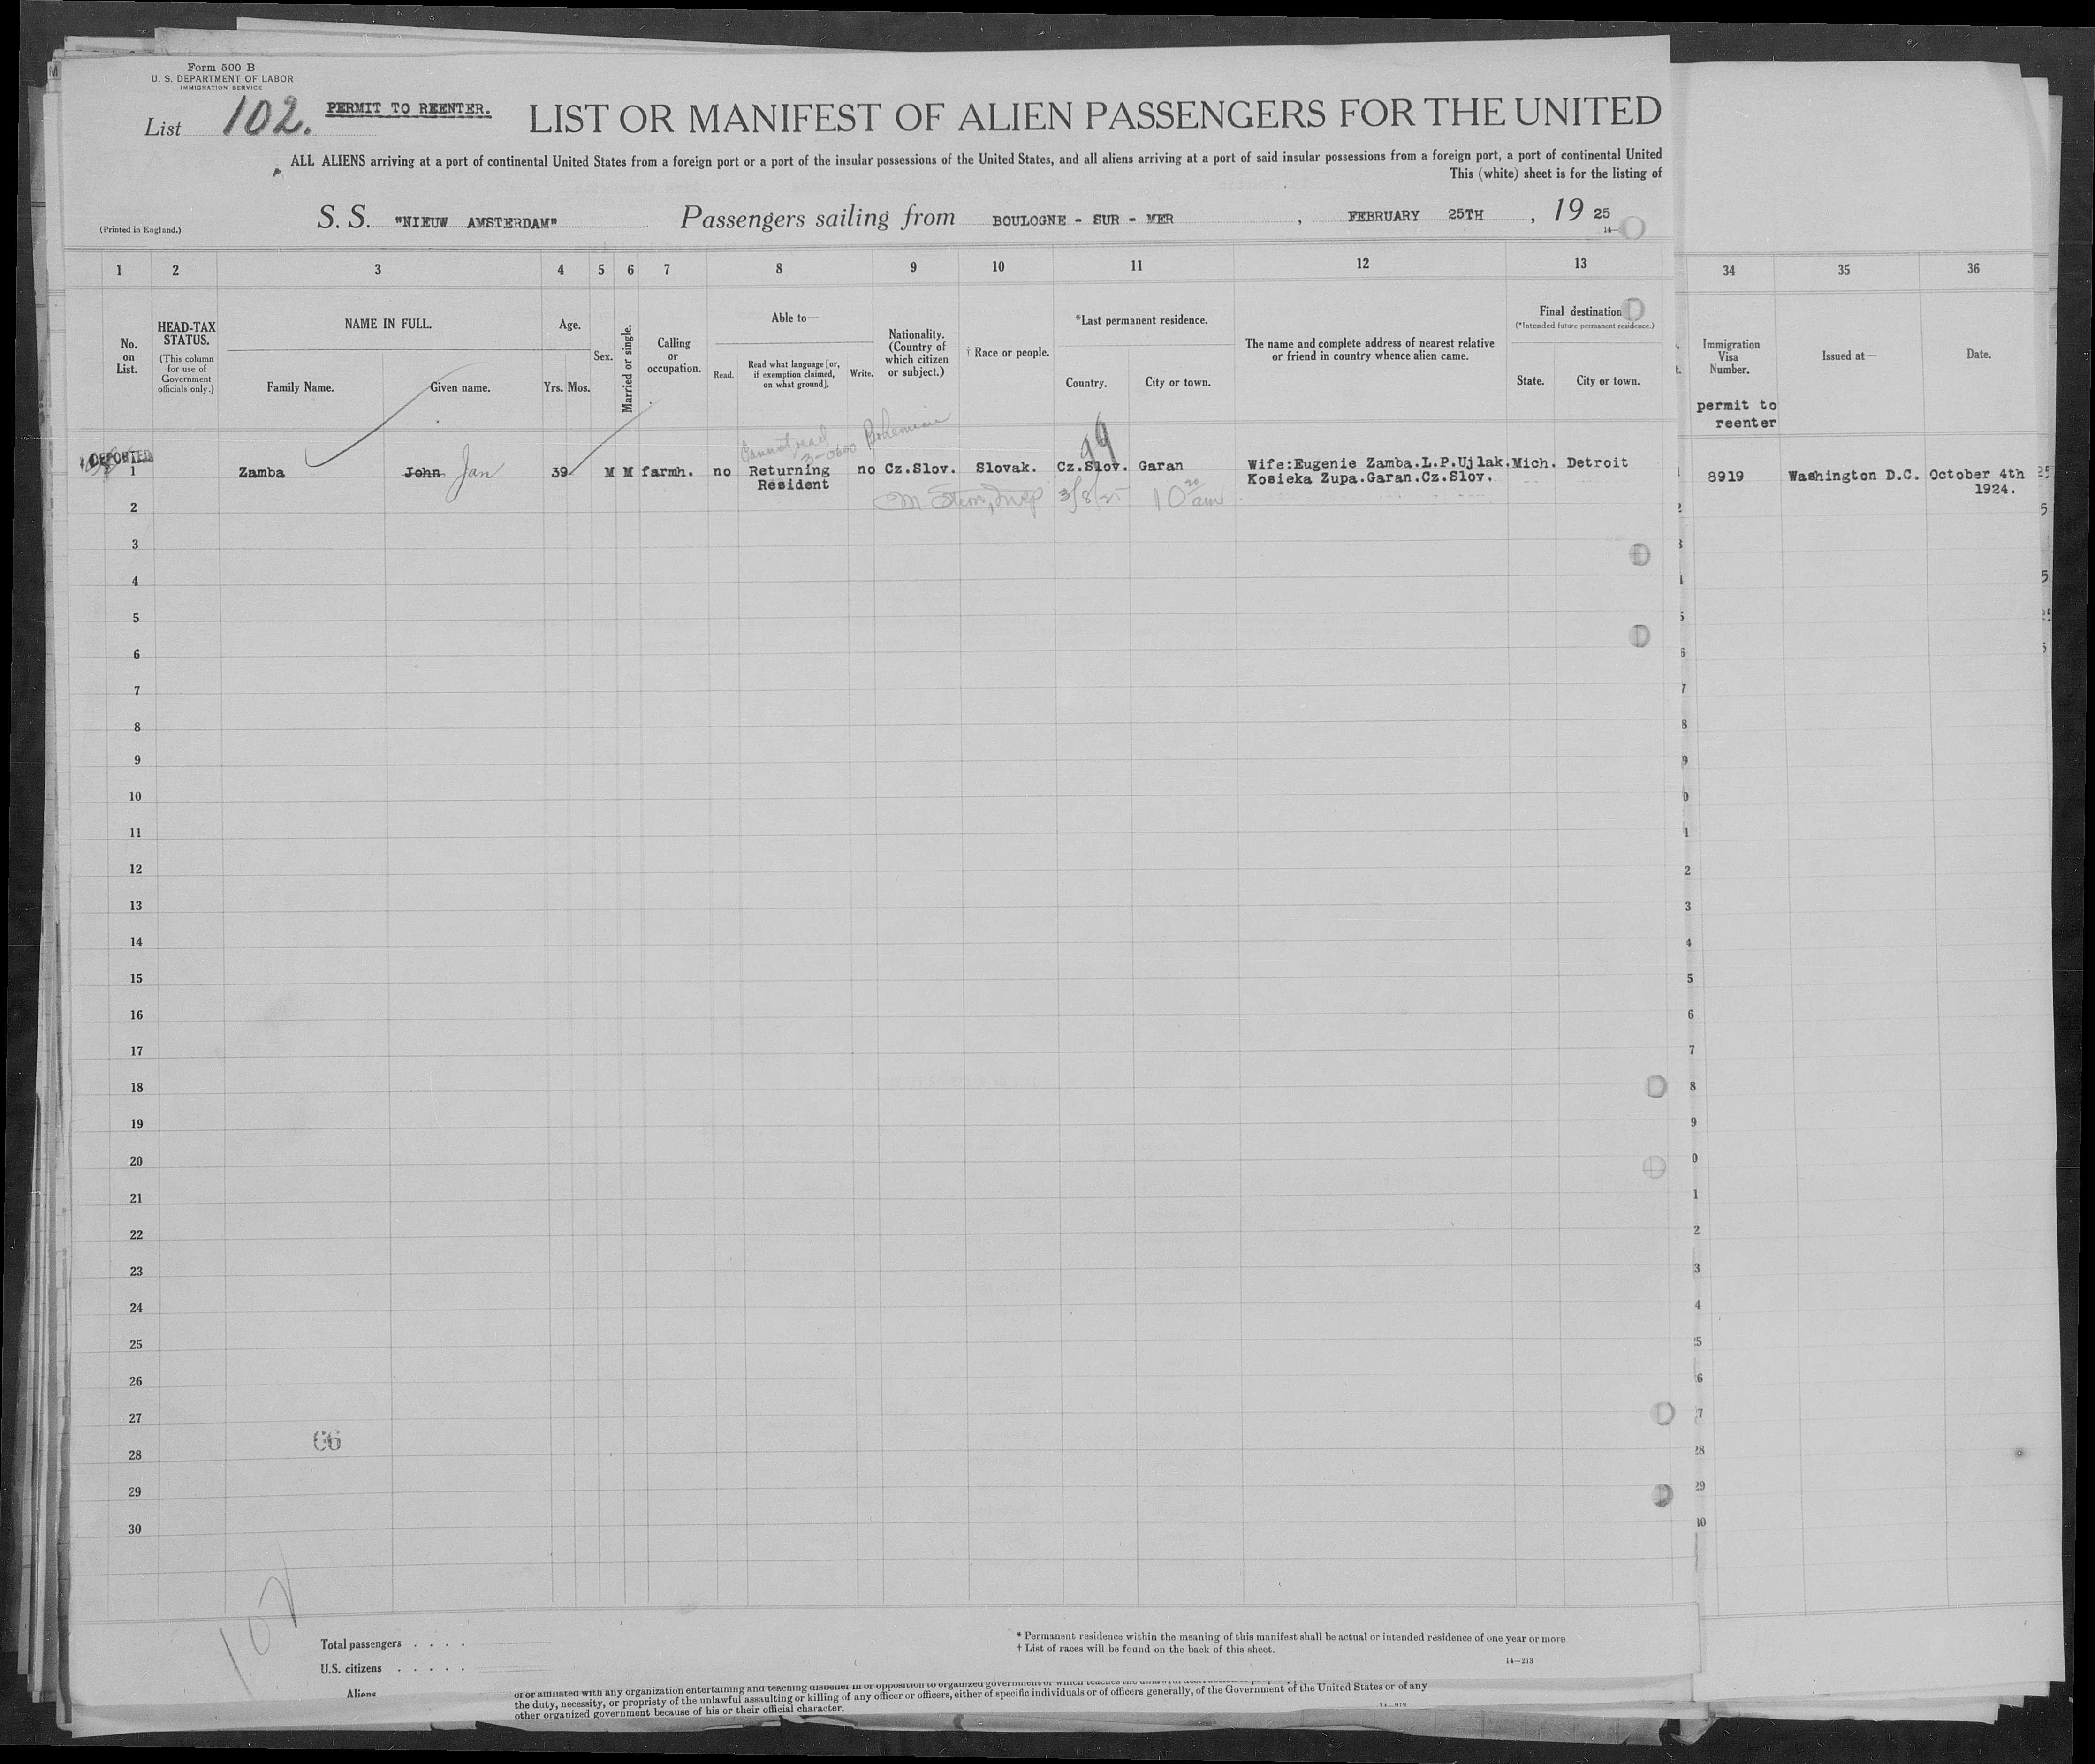 Form 500 B
U. S. DEPARTMENT OF LABOR
IMMIGRATION SERVICE
List 102. PERMIT TO REENTER. LIST OR MANIFEST OF ALIEN PASSENGERS FOR THE UNITED
ALL ALIENS arriving at a port of continental United States from a foreign port or a port of the insular possessions of the United States, and all aliens arriving at a port of said insular possessions from a foreign port, a port of continental United
This (white) sheet is for the listing of
(Printed in England.) S. S. "NIEUW AMSTERDAM" Passengers sailing from BOULOGNE - SUR - MER , FEBRUARY 25TH , 19 25
14—
1 2 3 4 5 6 7 8 9 10 11 12 13 34 35 36
No. on List.
HEAD-TAX STATUS.
(This column for use of Government officials only.)
NAME IN FULL.
Family Name. Given name.
Age.
Yrs. Mos.
Sex.
Married or single.
Calling or occupation.
Able to—
Read. Read what language [or, if exemption claimed, on what ground]. Write.
Nationality. (Country of which citizen or subject.)
† Race or people.
*Last permanent residence.
Country. City or town.
The name and complete address of nearest relative or friend in country whence alien came.
Final destination
(*Intended future permanent residence.)
State. City or town.
Immigration Visa Number.
Issued at—
Date.
permit to
reenter
Cannot read Bohemian
99
DEPORTED
1 Zamba John Jan 39 M M farmh. no Returning no Cz.Slov. Slovak. Cz.Slov. Garan Wife:Eugenie Zamba.L.P.Ujlak. Mich. Detroit 8919 Washington D.C. October 4th
Resident Kosieka Zupa.Garan.Cz.Slov. 1924.
3/8/25 10 20 am
2
3
4
5
6
7
8
9
10
11
12
13
14
15
16
17
18
19
20
21
22
23
24
25
26
27
66
28
29
30
102
Total passengers . . . .
U.S. citizens . . . . .
Aliens
* Permanent residence within the meaning of this manifest shall be actual or intended residence of one year or more
† List of races will be found on the back of this sheet.
14—213
of or affiliated with any organization entertaining and teaching disbelief in or opposition to organized government
the duty, necessity, or propriety of the unlawful assaulting or killing of any officer or officers, either of specific individuals or of officers generally, of the Government of the United States or of any
other organized government because of his or their official character.